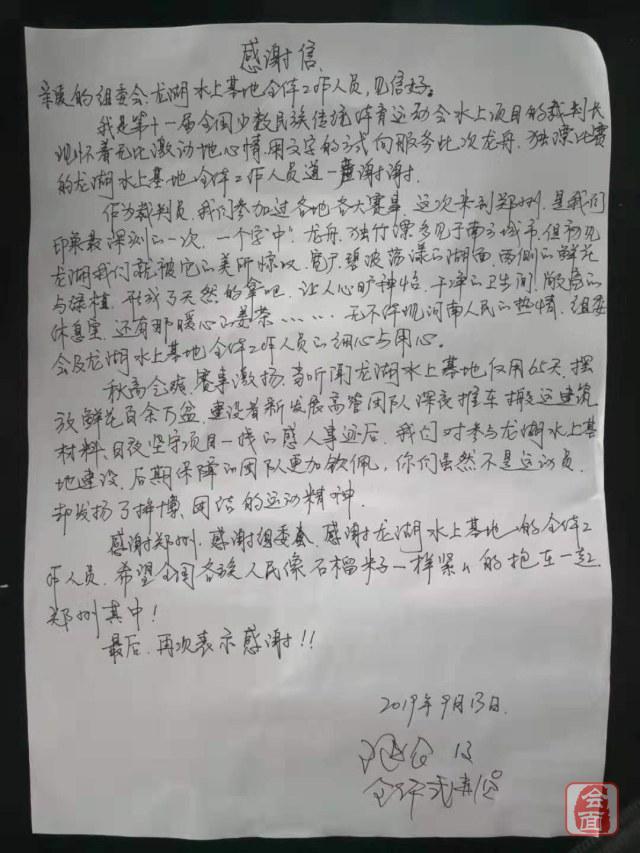 感谢信
亲爱的组委会、龙湖水上基地全体工作人员,见信好。
我是第十一届全国少数民族传统体育运动会水上项目的裁判长
现怀着无比激动地心情,用文字的方式向服务此次龙舟、独漂比赛
的龙湖水上基地全体工作人员道一声谢谢.
作为裁判员,我们参加过各地各大赛事,这次来到郑州,是我们
印象最深刻的一次,一个字"中".龙舟、独竹漂多见于南方城市,但初见
龙湖我们就被它的美所惊叹,宽广碧波荡漾的湖面,两侧的鲜花
与绿植,形成了天然的氧吧,让人心旷神怡,干净的卫生间,敞亮的
休息室,还有那暖心的姜茶………无不体现河南人民的热情,组委
会及龙湖水上基地全体工作人员的细心与用心。
秋高气爽,赛事激扬,当听闻龙湖水上基地仅用65天,摆
放鲜花百余万盆,建设者新发展高管团队深夜推车搬运建筑
材料、日夜坚守项目一线的感人事迹后,我们对参与龙湖水上基
地建设、后期保障的团队更加钦佩,你们虽然不是运动员,
却发扬了拼搏、团结的运动精神.
感谢郑州,感谢组委会,感谢龙湖水上基地的全体工
作人员,希望全国各族人民像石榴籽一样紧紧的抱在一起.
郑州其中!
最后,再次表示感谢!!
2019年9月13日.
会面